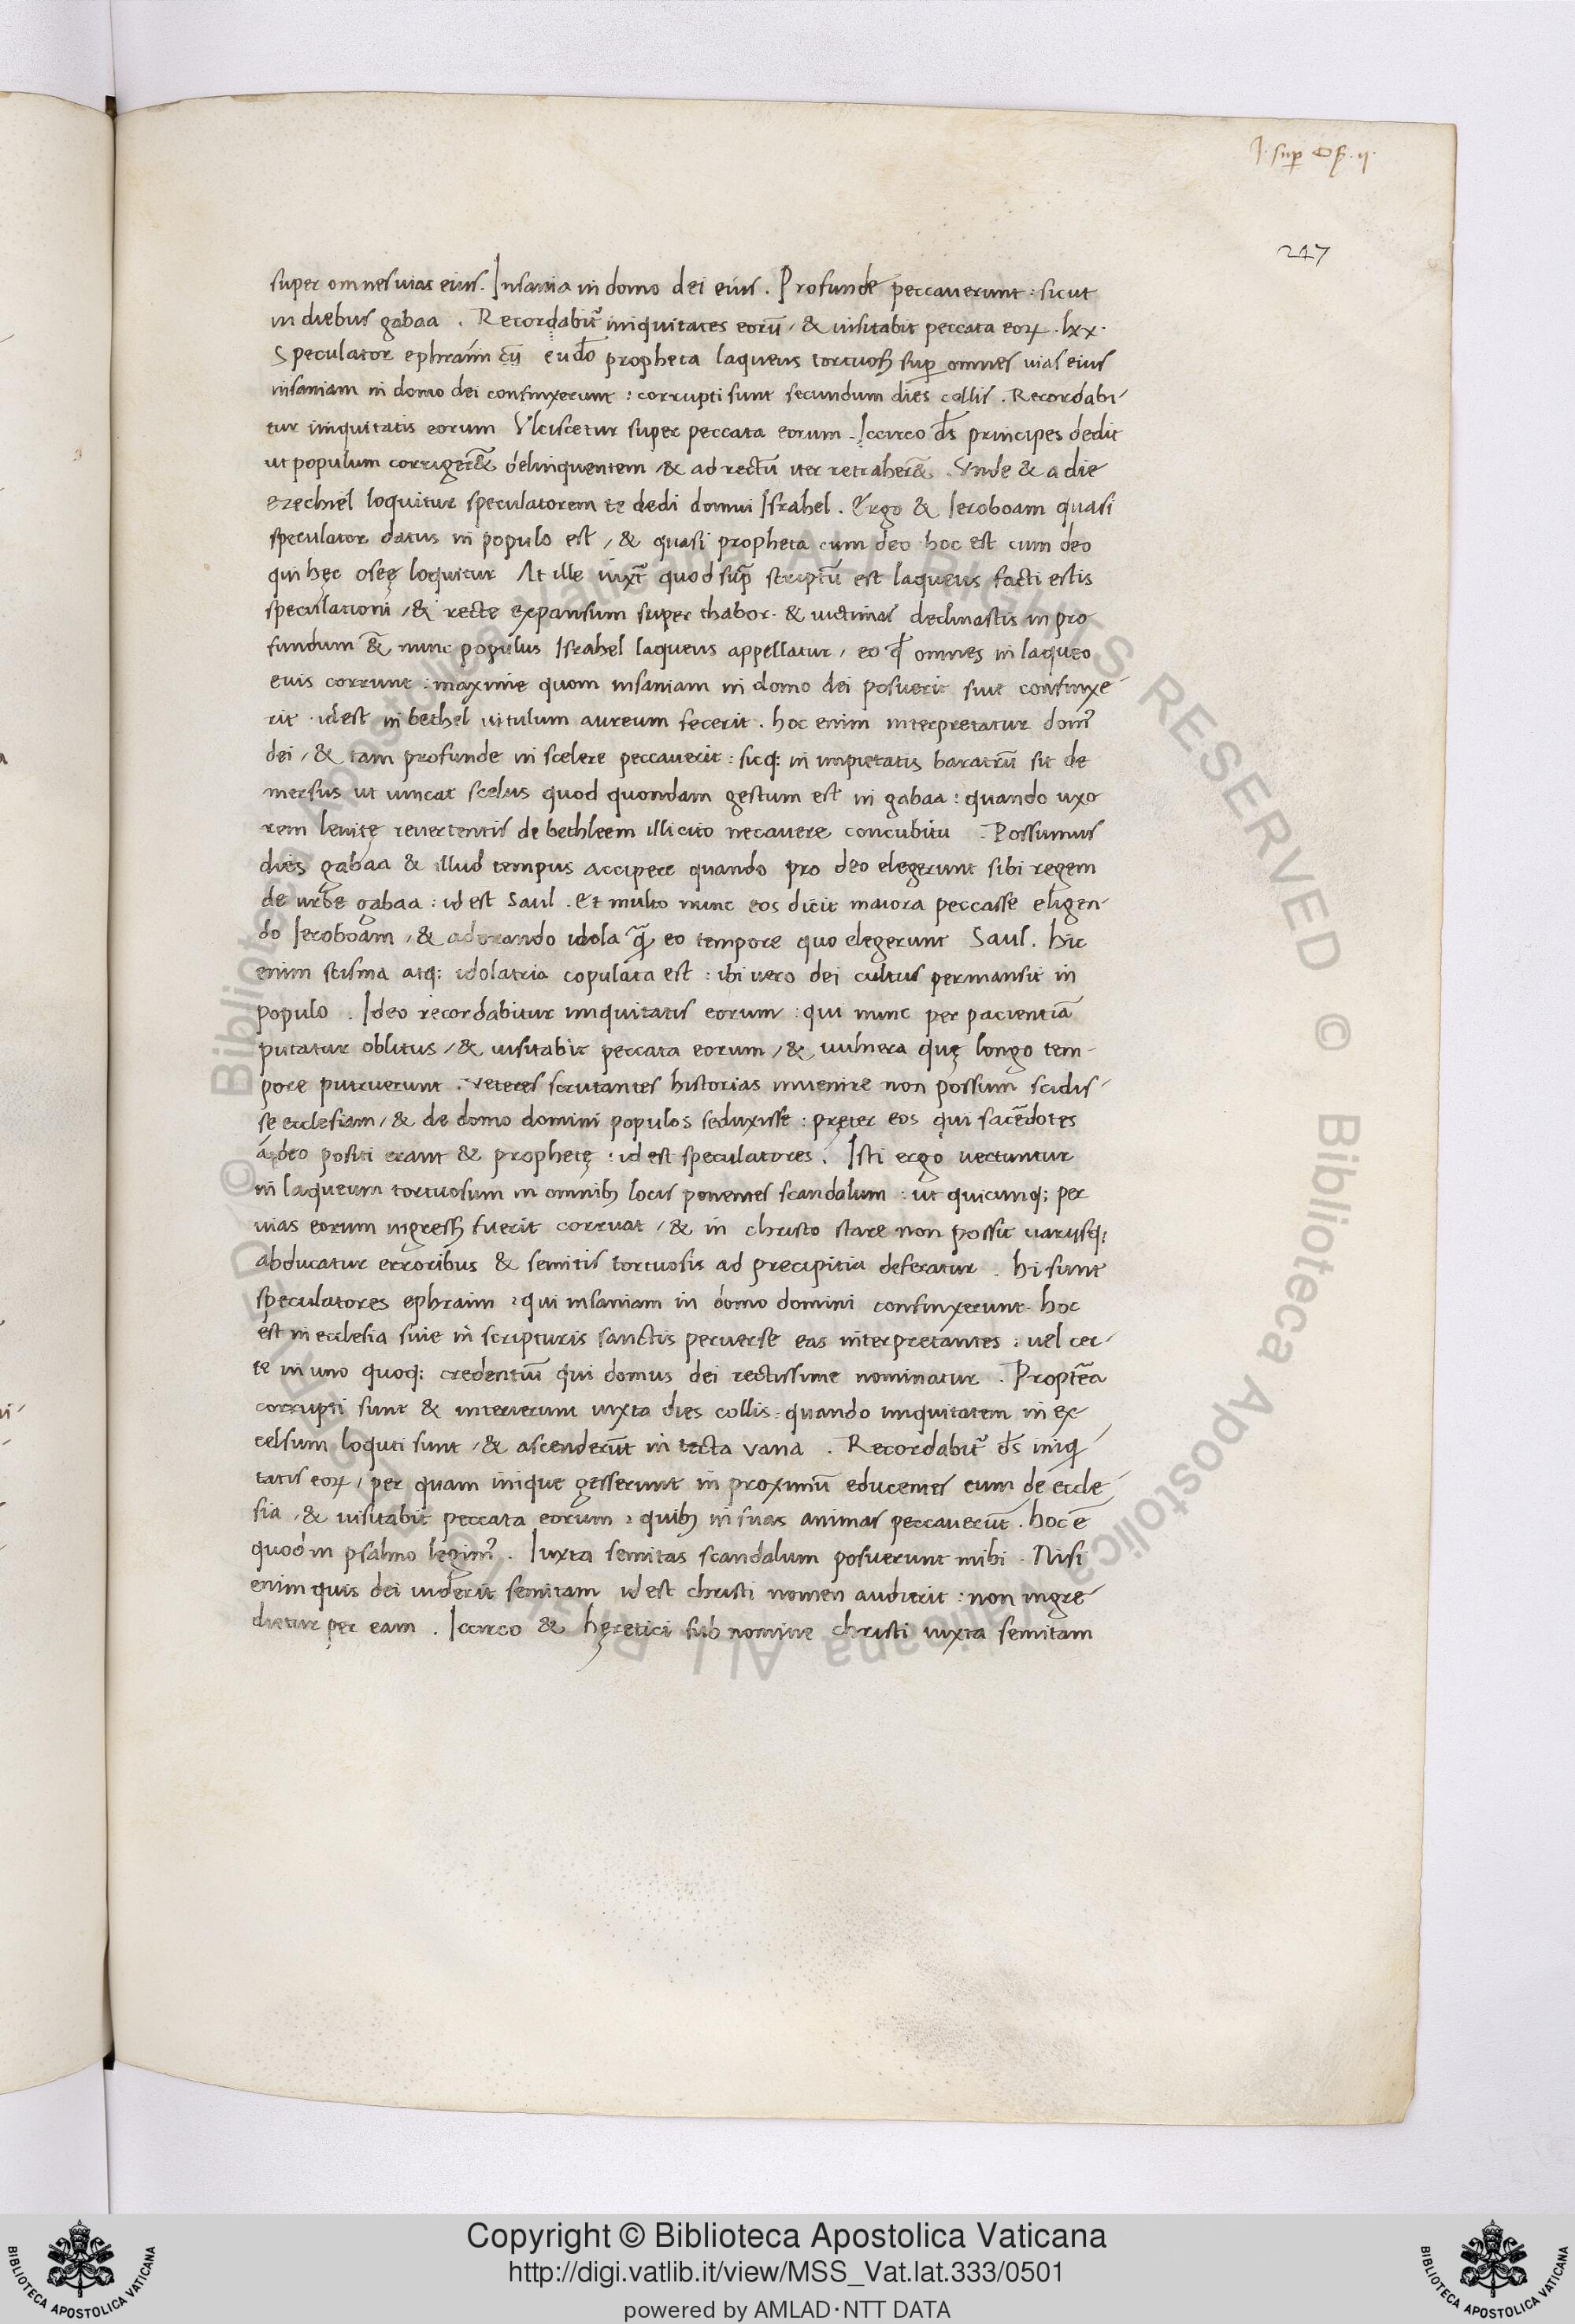 J. sup Os. ij.
247
super omnes uias eius. Insania in domo dei eius. Profunde peccauerunt: sicut
in diebus gabaa. Recordabit᷑ iniquitates eorū, & uisitabit peccata eoꝝ. lxx.
Speculator ephraim cū eudō propheta laqueus tortuosꝰ sup omnes uias eius
insaniam in domo dei confinxerunt: corrupti sunt secundum dies collis. Recordabi
tur iniquitatis eorum Vlciscetur super peccata eorum. Iccirco ds̄ principes dedit
ut populum corriger& delinquentem, & ad rectū iter retraher&. Vnde & a die
ezechiel loquitur speculatorem te dedi domui Israhel. Ergo & Ieroboam quasi
speculator datus in populo est, & quasi propheta cum deo hoc est cum deo
qui hęc oseę loquitur At ille iuxt̄ quod sup̄ scriptū est laqueus facti estis
speculationi, & recte expansum super thabor. & uictimas declinastis in pro
fundum &̄ nunc populus Israhel laqueus appellatur, eo qd̄ omnes in laqueo
euis corrunt: maxime quom insaniam in domo dei posuerit siue confinxe
rit. idest in bethel uitulum aureum fecerit. hoc enim interpretatur domꝰ
dei, & tam profunde in scelere peccauerit: sicq; in impietatis baratrū sit de
mersus ut uincat scelus quod quondam gestum est in gabaa: quando uxo
rem leuitę reuertentis de bethleem illicito necauere concubitu. Possumus
dies gabaa & illud tempus accipere quando pro deo elegerunt sibi regem
de urbe gabaa: id est Saul. Et multo nunc eos dicit maiora peccasse eligen-
do Ieroboam, & adorando idola q̄ eo tempore quo elegerunt Saul. hic
enim scisma atq; idolatria copulata est: ibi uero dei cultus permansit in
populo. Ideo recordabitur iniquitatis eorum: qui nunc per pacientiā
putatur oblitus, & uisitabit peccata eorum, & uulnera quę longo tem-
pore putruerunt. veteres scrutantes historias inuenire non possum scidis-
se ecclesiam, & de domo domini populos seduxisse: pręter eos qui sacēdotes
a deo positi erant & prophetę: id est speculatores. Isti ergo uertuntur
in laqueum tortuosum in omnibꝫ locis ponentes scandalum: ut quicunq; per
uias eorum ingressꝰ fuerit corruat, & in christo stare non possit uarijsq;
abducatur erroribus & semitis tortuosis ad precipitia deferatur. hi sunt
speculatores ephraim: qui insaniam in domo domini confinxerunt. hoc
est in ecclesia siue in scripturis sanctis peruerse eas interpretantes: uel cer-
te in uno quoq; credentiū qui domus dei rectissime nominatur. Propt̄ea
corrupti sunt & interierunt iuxta dies collis: quando iniquitatem in ex-
celsum loquti sunt, & ascenderūt in tecta vana. Recordabit᷑ ds̄ iniq-
tatis eoꝝ, per quam inique gesserunt in proximū educentes eum de eccle-
sia, & uisitabit peccata eorum: quibꝫ in suas animas peccauerūt. hoc ē
quod in psalmo legimꝰ. Iuxta semitas scandalum posuerunt mihi. Nisi
enim quis dei uiderit semitam id est christi nomen audierit: non ingre
dietur per eam. Iccirco & hęretici sub nomine christi iuxta semitam
Copyright © Biblioteca Apostolica Vaticana
http://digi.vatlib.it/view/MSS_Vat.lat.333/0501
powered by AMLAD·NTT DATA